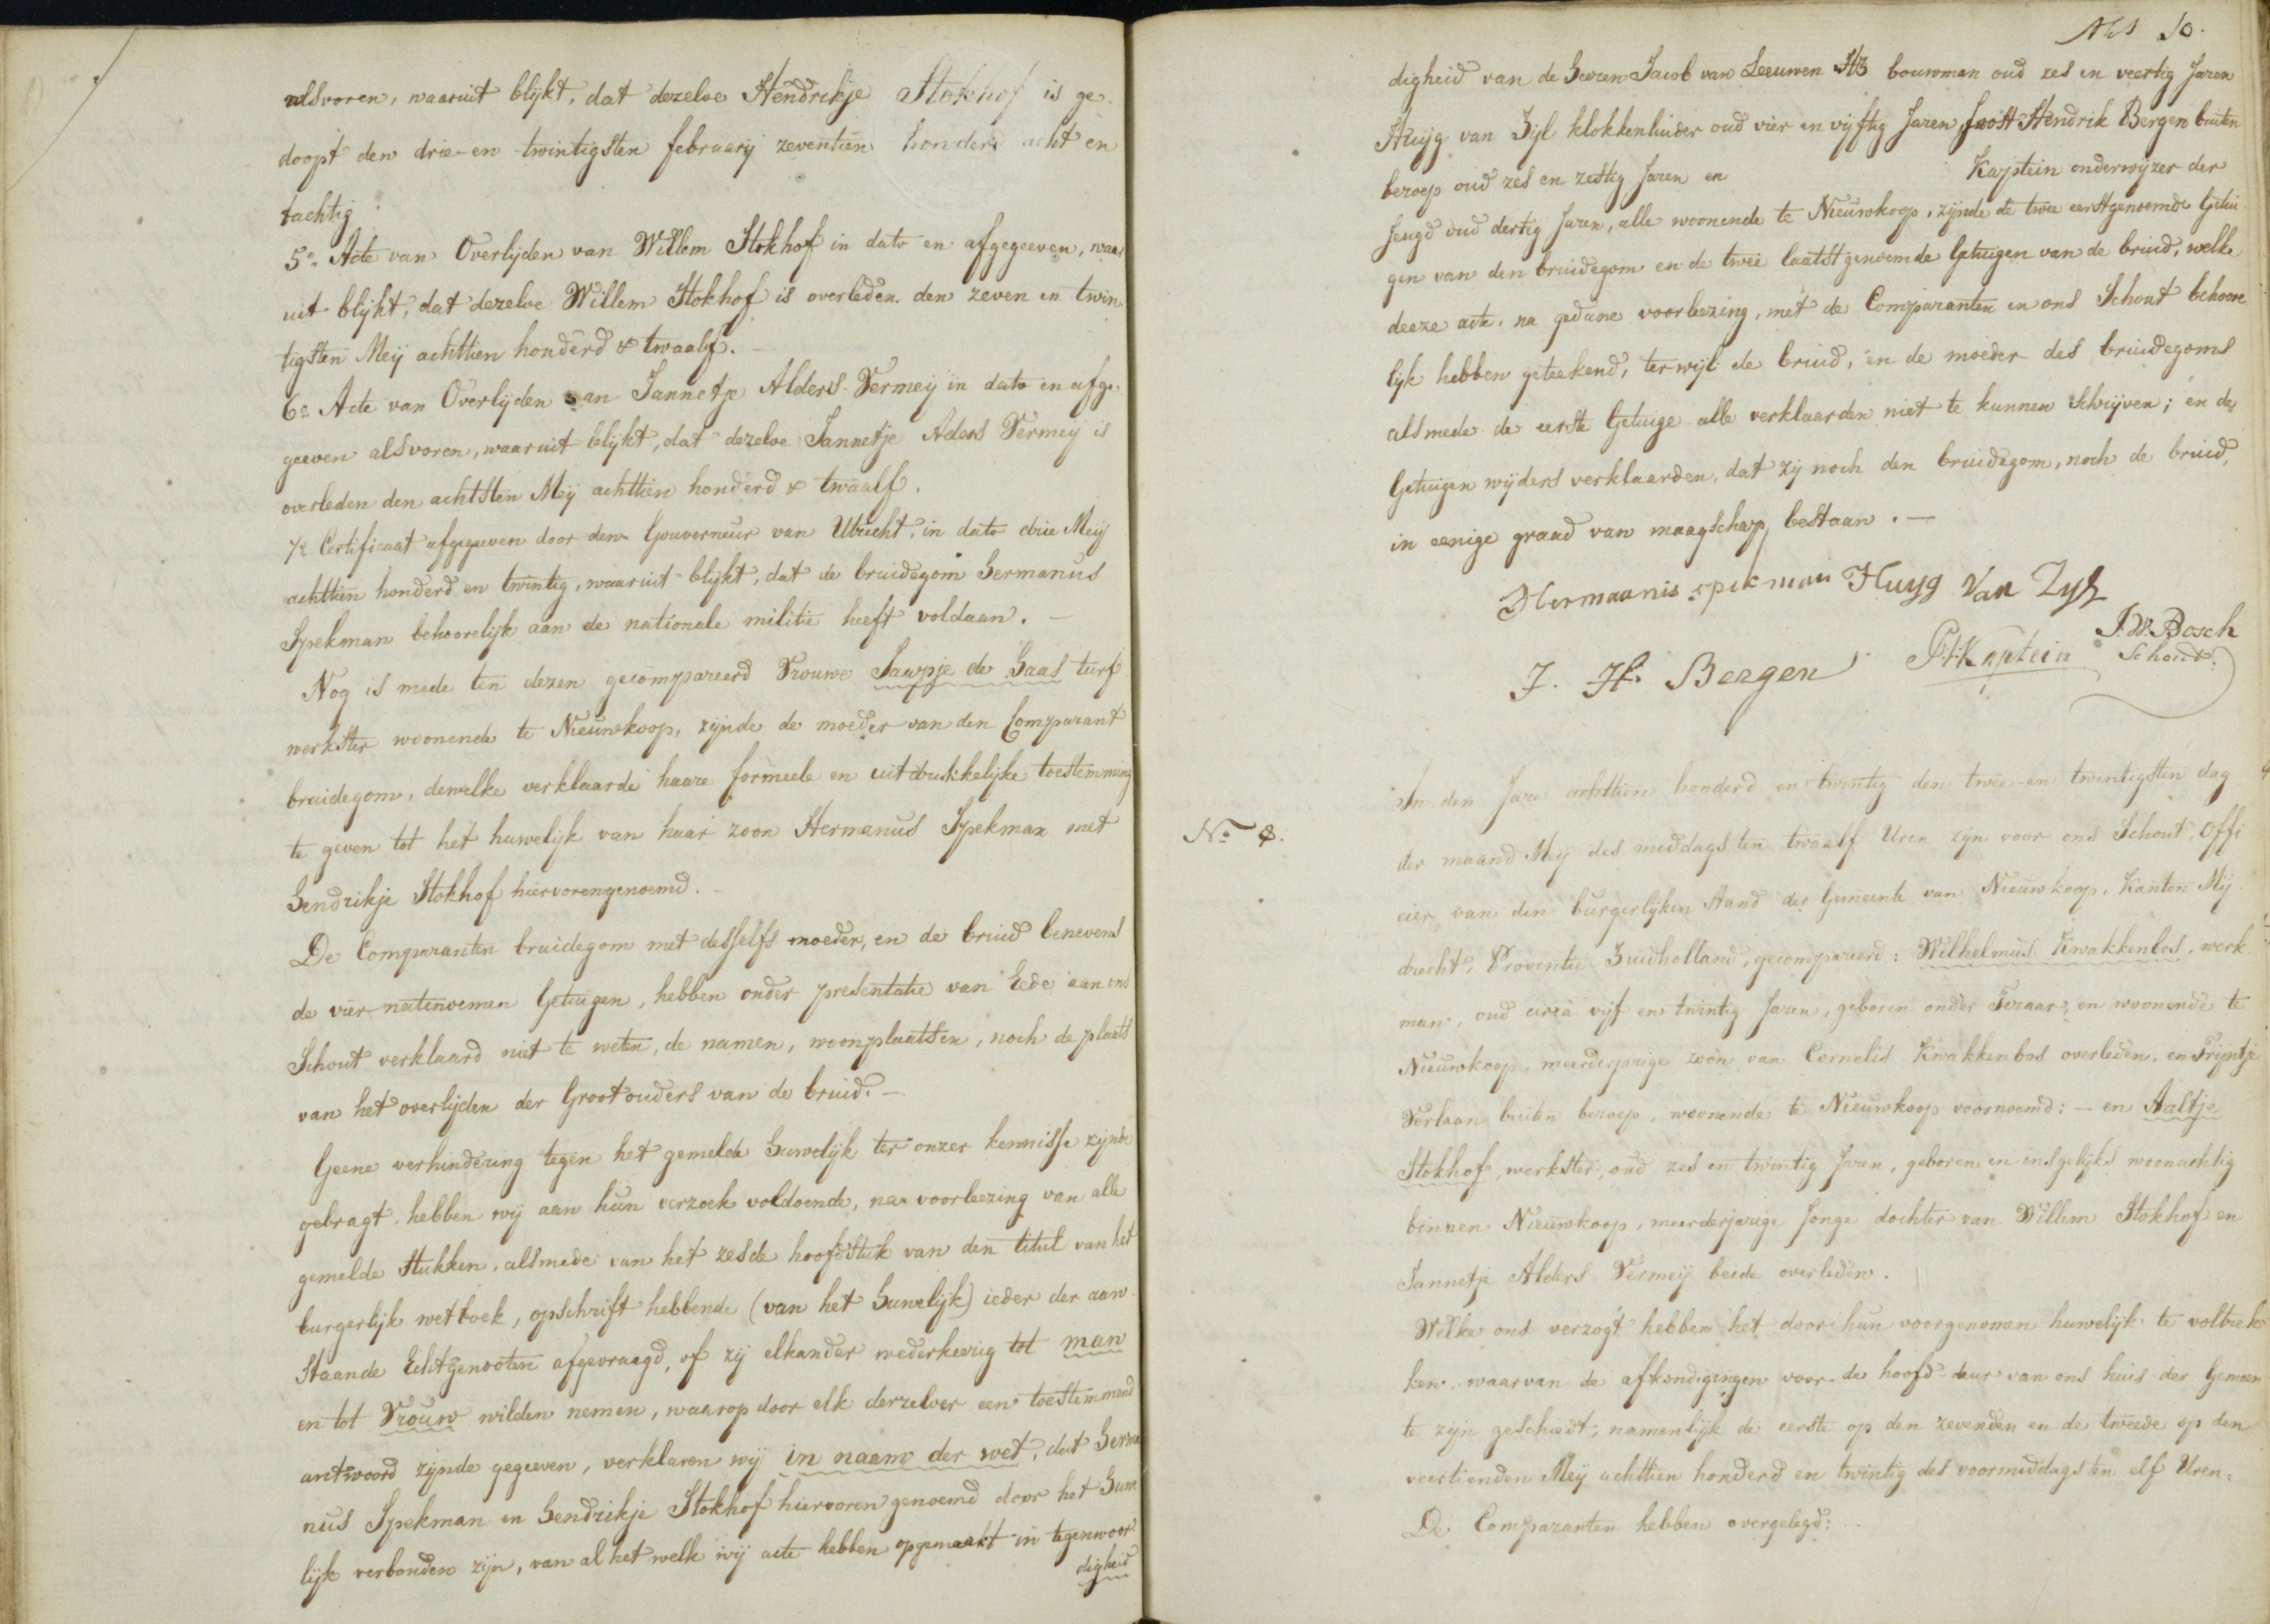 alsvoren, waaruit blijkt, dat dezelve Hendrikje Stokhof is ge-
doopt den drie-en-twintigsten februarij zeventien honderd acht en
tachtig.
5e. Acte van Overlijden van Willem Stokhof in dato en afgegeeven, waar
uit blijkt, dat dezelve Willem Stokhof is overleden den zeven en twin
tigsten Meij achttien honderd & twaalf. —
6e. Acte van Overlijden van Jannetje Alders Vermeij in dato en afge-
geeven alsvoren, waaruit blijkt, dat dezelve Jannetje Alders Vermeij is
overleden den achtsten Meij achttien honderd & twaalf.
7e Certificaat afgegeeven door den Gouverneur van Utrecht, in dato drie Meij
achttien honderd en twintig, waaruit blijkt, dat de bruidegom Hermanus
Spekman behoorelijk aan de nationale militie heeft voldaan. —
Nog is mede ten dezen gecompareerd Vrouwe Jaapje de Haas turf
werkster woonende te Nieuwkoop, zijnde de moeder van den Comparant
bruidegom, dewelke verklaarde haare formeele en uitdrukkelijke toestemming
te geven tot het huwelijk van haar zoon Hermanus Spekman met
Hendrikje Stokhof hiervorengenoemd. -
De Comparanten bruidegom met desselfs moeder, en de bruid benevens
de vier natenoemen Getuigen, hebben onder presentatie van Eede aan ons
Schout verklaard niet te weten, de namen, woonplaatsen, noch de plaats
van het overlijden der Grootouders van de bruid. —
Geene verhindering tegen het gemelde Huwelijk ter onzer kennisse zijnde
gebragt, hebben wij aan hun verzoek voldoende, na voorleezing van alle
gemelde stukken, alsmede van het zesde hoofdstuk van den titul van het
burgerlijk wetboek, opschrift hebbende (van het Huwelijk) ieder der aan
staande Echtgenooten afgevraagd, of zij elkander wederkeerig tot man
en tot Vrouw wilden nemen, waarop door elk derzelver een toestemmend
antwoord zijnde gegeeven, verklaren wij in naam der wet, dat Herma
nus Spekman en Hendrikje Stokhof hiervoren genoemd door het Huwe
lijk verbonden zijn, van al het welk wij acte hebben opgemaakt in tegenwoor
digheid
10.
digheid van de Heeren Jacob van Leeuwen Hz bouwman oud zes en veertig Jaren
Huijg van Zijl klokkenluider oud vier en vijftig Jaren, Joost Hendrik Bergen buiten
beroep oud zes en zestig Jaren en Kaptein onderwijzer der
Jeugd oud dertig Jaren, alle woonende te Nieuwkoop, zijnde de twee eerstgenoemde Getui
gen van den bruidegom en de twee laatstgenoemde Getuigen van de bruid, welke
deeze acte, na gedane voorleezing, met de Comparanten en ons Schout behoore
lijk hebben geteekend, terwijl de bruid, en de moeder des bruidegoms
alsmede de eerste Getuige alle verklaarden niet te kunnen Schrijven; en de
Getuigen wijders verklaarden, dat zij noch den bruidegom, noch de bruid,
in eenige graad van maagschap bestaan. —
Hermanis spekman Huyg Van Zyl
J. W. Bosch
Schout.
J. H. Bergen P. Kaptein
In den Jare achttien honderd en twintig den twee-en twintigsten dag
No 8.
der maand Meij des middags ten twaalf Uren zijn voor ons Schout, Offi
cier van den burgerlijken Stand der Gemeente van Nieuwkoop, Kanton Mij
drecht, Provintie Zuidholland, gecompareerd: Wilhelmus Kwakkenbos, werk
man, oud circa vijf en twintig Jaren, geboren onder Teraar, en woonende te
Nieuwkoop, meerderjarige zoon van Cornelis Kwakkenbos overleden, en Trijntje
Verlaan buiten beroep, woonende te Nieuwkoop voornoemd; — en Aaltje
Stokhof, werkster, oud zes en twintig Jaren, geboren en insgelijks woonachtig
binnen Nieuwkoop, meerderjarige Jonge dochter van Willem Stokhof en
Jannetje Alders Vermeij beide overleden.
Welke ons verzogt hebben het door hun voorgenomen huwelijk te voltrek
ken, waarvan de afkondigingen voor de hoofd-deur van ons huis der Gemeen
te zijn geschiedt; namenlijk de eerste op den zevenden en de tweede op den
veertienden Meij achttien honderd en twintig des voormiddags ten elf Uren.
De Comparanten hebben overgelegd: —